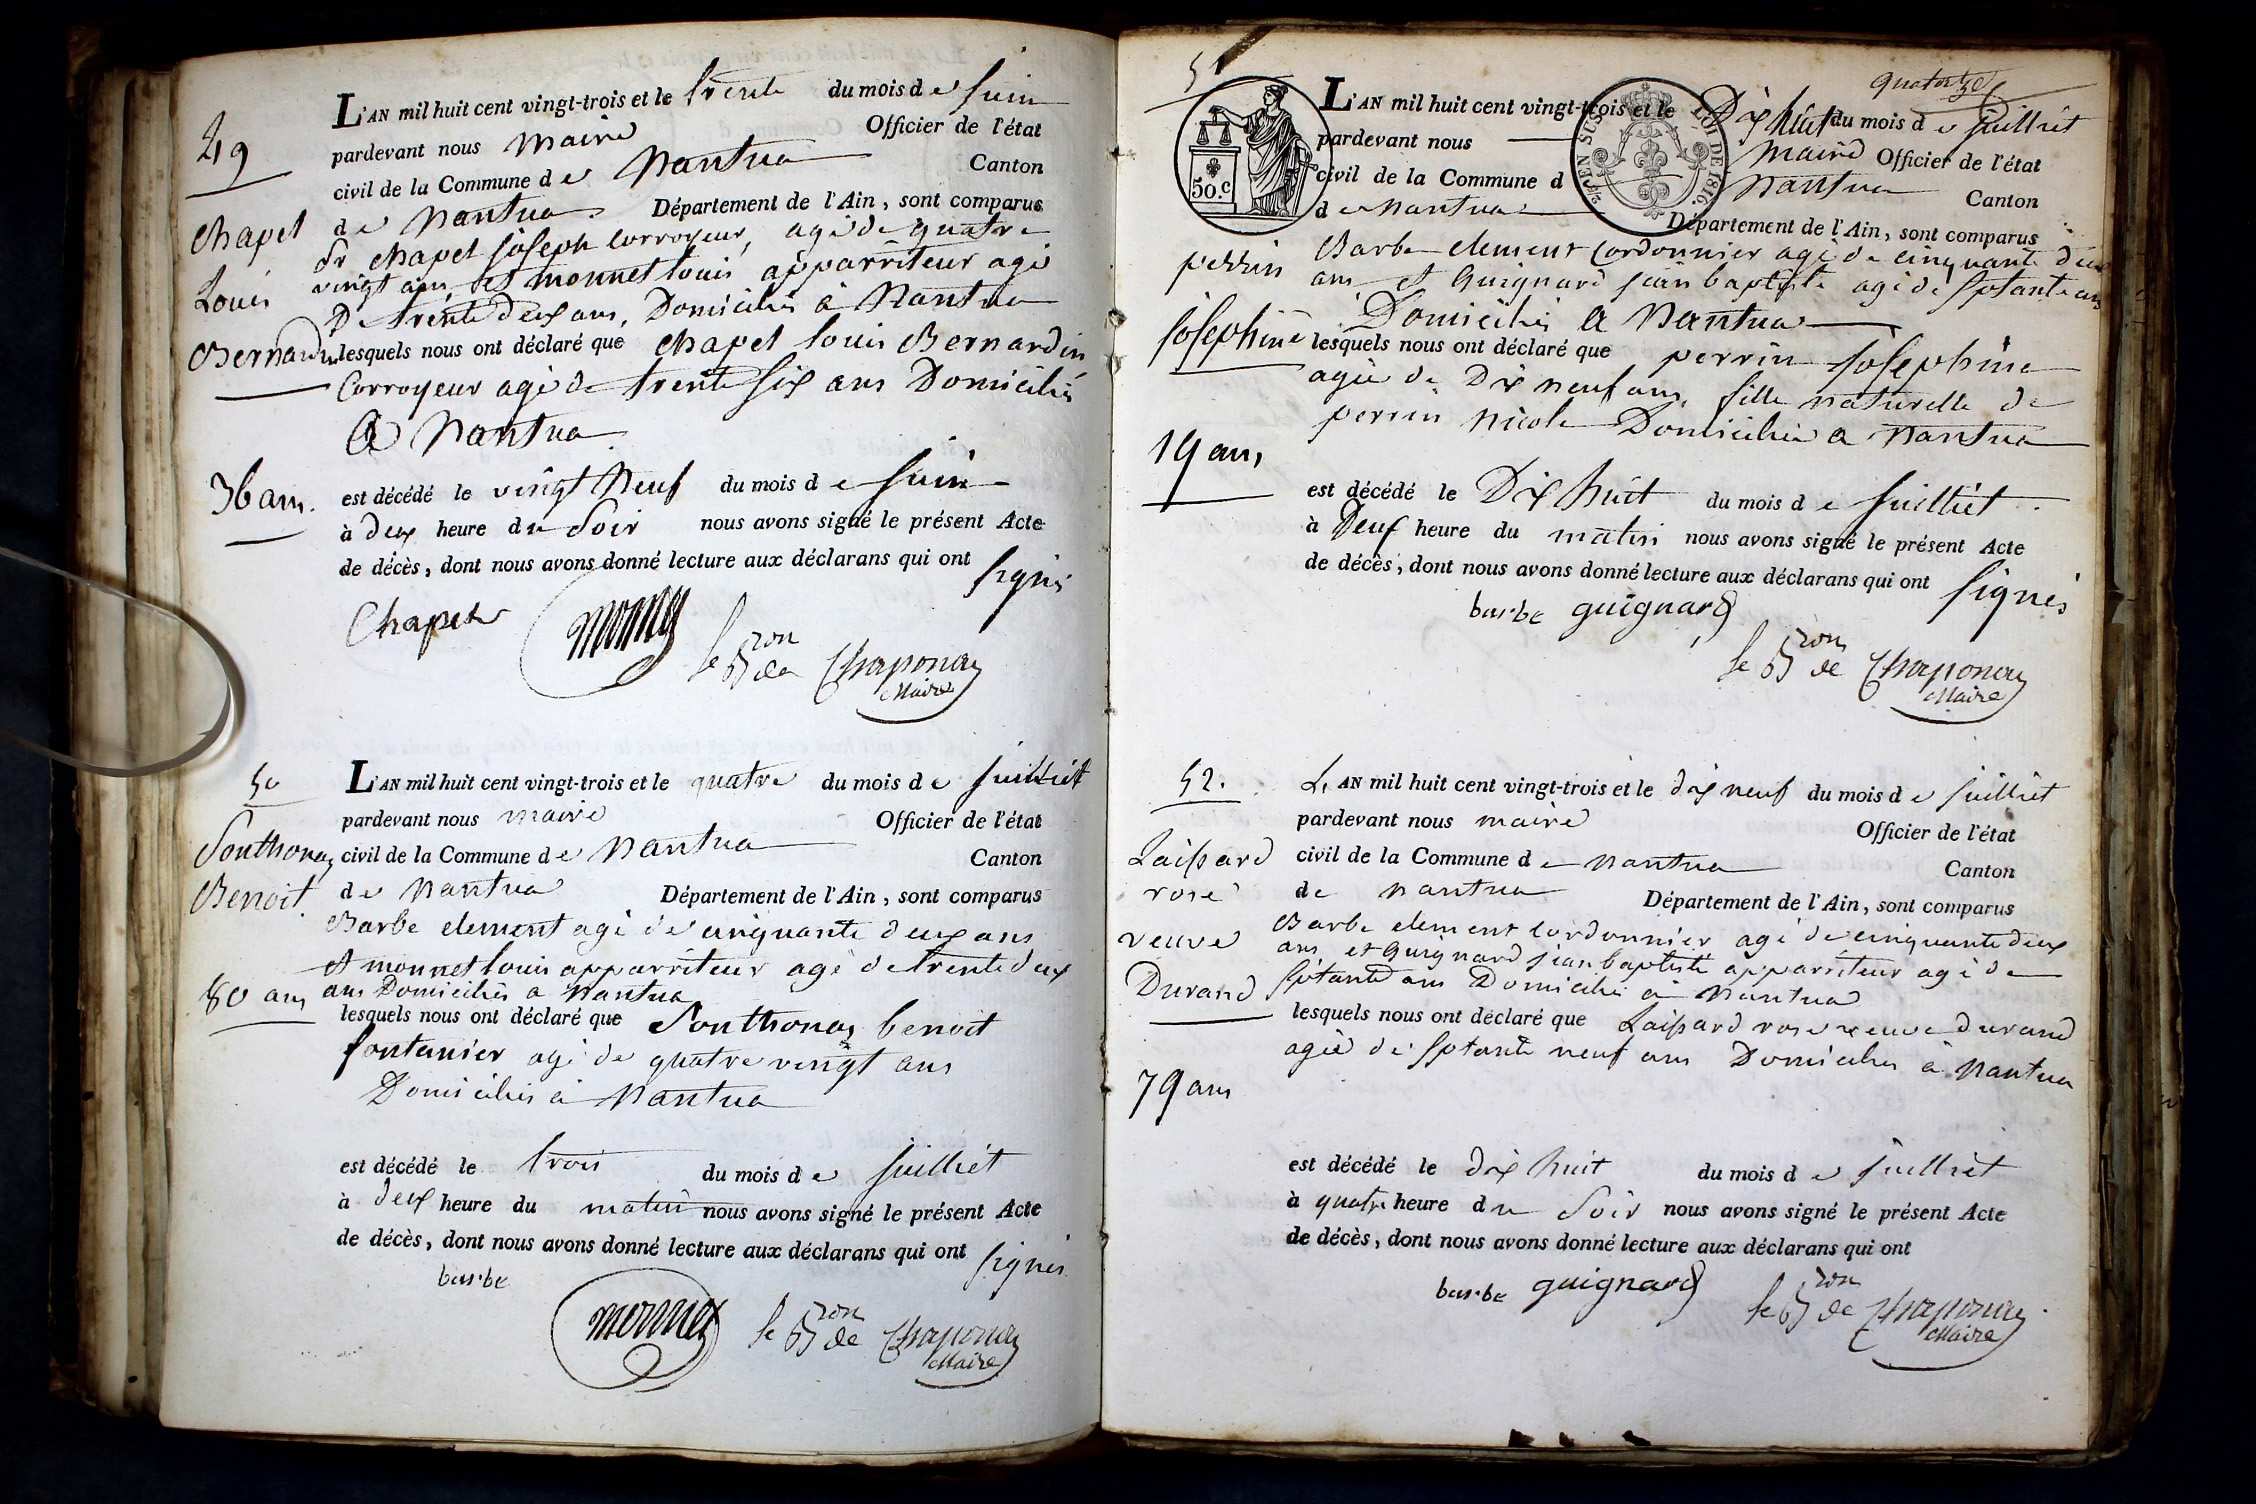 49
L'AN mil huit cent vingt-trois et le trente du mois de juin
pardevant nous maire Officier de l'état
civil de la Commune de Nantua Canton
de Nantua Département de l'Ain, sont comparus
chapel
Sr chapel joseph corroyeur, agé de quatre
vingt ans et monnet louis apparriteur agé
Louis
De trente deux ans, Domiciliés à Nantua
Bernardin
lesquels nous ont déclaré que chapel louis Bernardin
Corroyeur agé de trente six ans Domicilié
A Nantua
36 ans.
est décédé le vingt Neuf du mois de juin
à deux heure du Soir nous avons signé le présent Acte
de décès, dont nous avons donné lecture aux déclarans qui ont signés
Chapel monnet le Bron de Chaponay
Maire
50
L'AN mil huit cent vingt-trois et le quatre du mois de juilliet
pardevant nous maire Officier de l'état
Sonthonax
civil de la Commune de Nantua Canton
Benoit.
de Nantua Département de l'Ain, sont comparus
Barbe clement agé de cinquante deux ans
et monnet louis apparriteur agé de trente deux
80 ans
ans Domiciliés a Nantua
lesquels nous ont déclaré que Sonthonax benoit
fontanier agé de quatre vingt ans
Domicilié à Nantua
est décédé le trois du mois de juilliet
à deux heure du matin nous avons signé le présent Acte
de décès, dont nous avons donné lecture aux déclarans qui ont signés
barbe monnet le Bron de Chaponay
Maire
quatorze
51
L'AN mil huit cent vingt-trois et le Dix huit du mois de juilliet
pardevant nous maire Officier de l'état
civil de la Commune d Nantua Canton
de Nantua Département de l'Ain, sont comparus
50.c
EN SUS
LOI DE 1816.
perrin
Barbe clement Cordonnier agé de cinquante deux
ans et Guignard jean baptiste agé de sptante ans
Domiciliés a Nantua
josephine
lesquels nous ont déclaré que perrin josephine
agée de Dix neuf ans, fille naturelle de
perrin Nicole Domiciliée a Nantua
19 ans
est décédé le Dix huit du mois de juilliet
à Neuf heure du matin nous avons signé le présent Acte
de décès, dont nous avons donné lecture aux déclarans qui ont signés
barbe guignard
le Bron de Chaponay
Maire
52.
L'AN mil huit cent vingt-trois et le dix neuf du mois de juilliet
pardevant nous maire Officier de l'état
Laissard
civil de la Commune de Nantua Canton
rose
de Nantua Département de l'Ain, sont comparus
veuve
Barbe clement cordonnier agé de cinquante deux
ans et Guignard jean baptiste apparriteur agé de
Durand
sptante ans Domiciliés à Nantua
lesquels nous ont déclaré que Laissard rose veuve durand
agée de sptante neuf ans Domiciliée à Nantua
79 ans
est décédé le dix huit du mois de juilliet
à quatre heure du Soir nous avons signé le présent Acte
de décès, dont nous avons donné lecture aux déclarans qui ont
barbe guignard le Bron de Chaponay
Maire